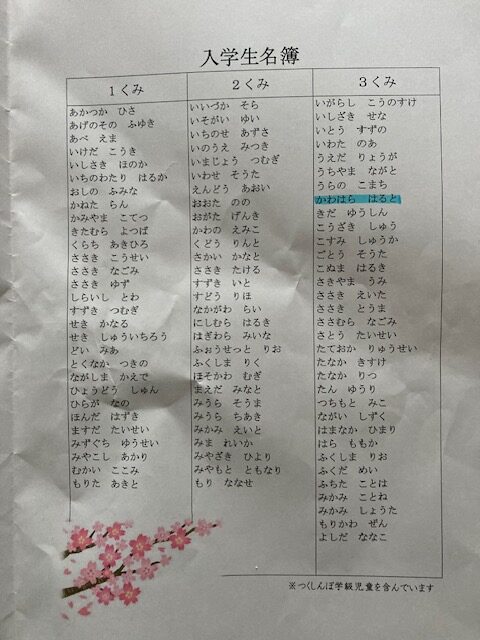 入学生名簿
1くみ
あかつか ひさ
あげのその ふゆき
あべ えま
いけだ こうき
いしさき ほのか
いちのわたり はるか
おしの ふみな
かねた らん
かみやま こてつ
きたむら よつば
くらち あきひろ
ささき こうせい
ささき なごみ
ささき ゆず
しらいし とわ
すずき つむぎ
せき かなる
せき しゅういちろう
どい みあ
とくなか つきの
ながしま かえで
ひょうどう しゅん
ひらが なの
ほんだ はずき
ますだ たいせい
みずぐち ゆうせい
みやこし あかり
むかい ここみ
もりた あきと
2くみ
いいづか そら
いそがい ゆい
いちのせ あずさ
いのうえ みつき
いまじょう つむぎ
いわせ そうた
えんどう あおい
おおた のの
おがた げんき
かわの えみこ
くどう りんと
さかい かなと
ささき たける
すずき いと
すどう りほ
なかがわ らい
にしむら はるき
はぎわら みいな
ふぉうせっと りお
ふくしま りく
ほそかわ むぎ
まえだ みなと
みうら そうま
みうら ちあき
みかみ えいと
みま れいか
みやざき ひより
みやもと ともなり
もり ななせ
3くみ
いがらし こうのすけ
いしざき せな
いとう すずの
いわた のあ
うえだ りょうが
うちやま ながと
うらの こまち
かわはら はると
きだ ゆうしん
こうざき しゅう
こすみ しゅうか
ごとう そうた
こぬま はるき
さきやま うみ
ささき えいた
ささき とうま
ささむら なごみ
さとう たいせい
たておか りゅうせい
たなか きすけ
たなか りつ
たん ゆうり
つちもと みこ
ながい しずく
はまなか ひまり
はら ももか
ふくしま りお
ふくだ めい
ふちた ことは
みかみ ことね
みかみ しょうた
もりかわ ぜん
よしだ ななこ
※つくしんぼ学級児童を含んでいます